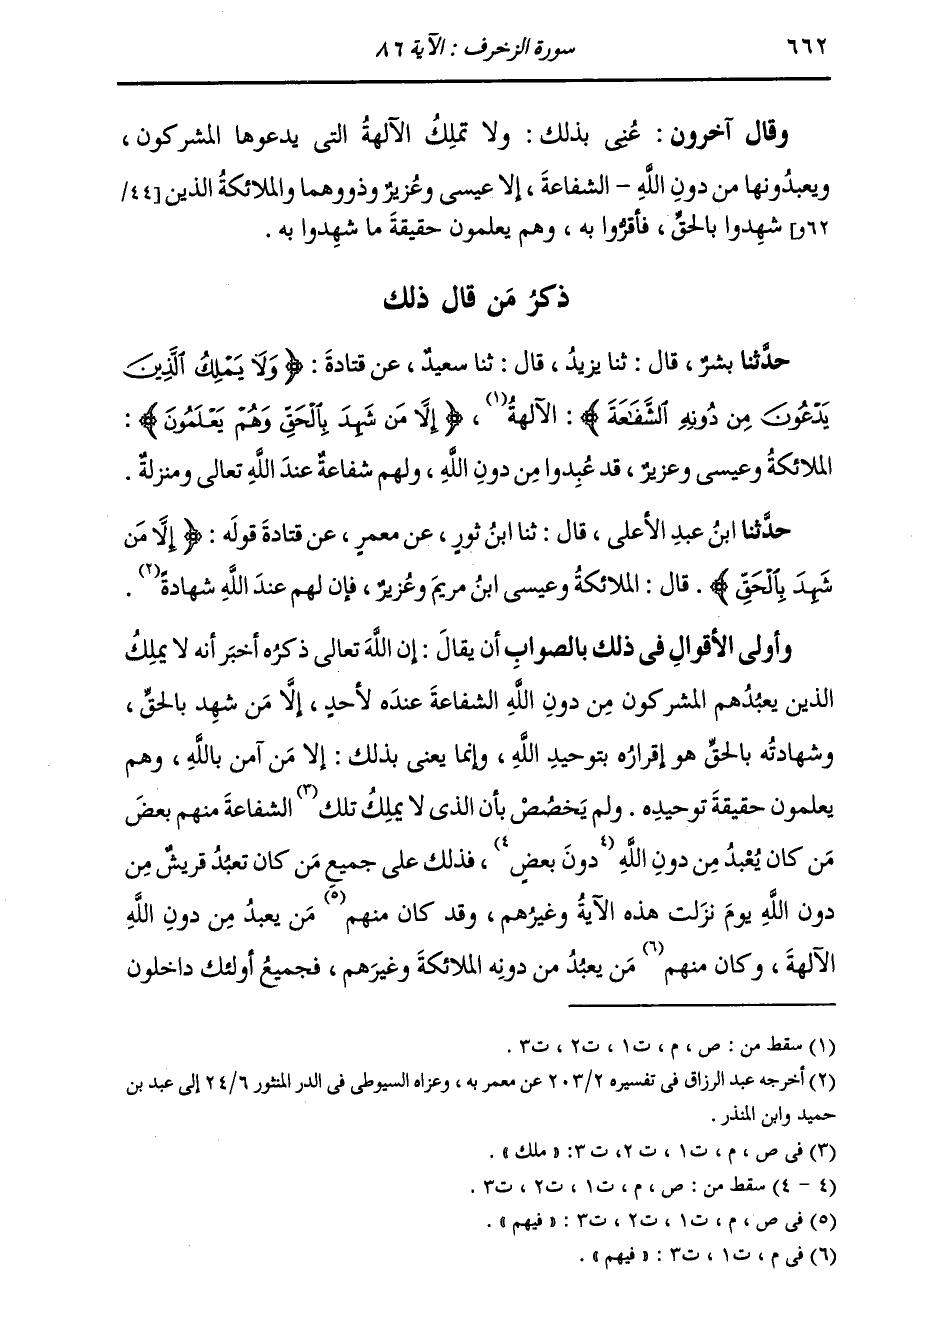 ٦٦٢
سورة الزخرف : الآية ٨٦
وقال آخرون : عُنِى بذلك : ولا تملِكُ الآلهةُ التى يدعوها المشركون ،
ويعبدُونها من دونِ اللَّهِ – الشفاعةَ ، إلا عيسى وعُزيرٌ وذووهما والملائكةُ الذين [٤٤/
٦٢و] شهِدوا بالحقِّ ، فأقرُّوا به ، وهم يعلمون حقيقةَ ما شهِدوا به .
ذكرُ مَن قال ذلك
حدَّثنا بشرٌ ، قال : ثنا يزيدُ ، قال : ثنا سعيدٌ ، عن قتادةَ : ﴿ وَلَا يَمْلِكُ الَّذِينَ
يَدْعُونَ مِن دُونِهِ الشَّفَٰعَةَ ﴾ : الآلهةُ(١) ، ﴿ إِلَّا مَن شَهِدَ بِالْحَقِّ وَهُمْ يَعْلَمُونَ ﴾ :
الملائكةُ وعيسى وعزيرٌ ، قد عُبِدوا مِن دونِ اللَّهِ ، ولهم شفاعةٌ عندَ اللَّهِ تعالى ومنزلةٌ .
حدَّثنا ابنُ عبدِ الأعلى ، قال : ثنا ابنُ ثورٍ ، عن معمرٍ ، عن قتادةَ قولَه : ﴿ إِلَّا مَن
شَهِدَ بِالْحَقِّ ﴾ . قال : الملائكةُ وعيسى ابنُ مريمَ وعُزيرٌ ، فإن لهم عندَ اللَّهِ شهادةً(٢) .
وأولى الأقوالِ فى ذلك بالصوابِ أن يقالَ : إن اللَّهَ تعالى ذكرُه أخبَر أنه لا يملِكُ
الذين يعبُدُهم المشركون مِن دونِ اللَّهِ الشفاعةَ عندَه لأحدٍ ، إلَّا مَن شهِد بالحقِّ ،
وشهادتُه بالحقِّ هو إقرارُه بتوحيدِ اللَّهِ ، وإنما يعنى بذلك : إلا مَن آمن باللَّهِ ، وهم
يعلمون حقيقةَ توحيدِه . ولم يَخصُصْ بأن الذى لا يملِكُ تلك(٣) الشفاعةَ منهم بعضَ
مَن كان يُعْبدُ مِن دونِ اللَّهِ (٤دونَ بعضٍ٤) ، فذلك على جميعِ مَن كان تعبُدُ قريشٌ مِن
دون اللَّهِ يومَ نزَلت هذه الآيةُ وغيرُهم ، وقد كان منهم(٥) مَن يعبدُ مِن دونِ اللَّهِ
الآلهةَ ، وكان منهم(٦) مَن يعبُدُ من دونِه الملائكةَ وغيرَهم ، فجميعُ أولئك داخلون
(١) سقط من : ص ، م ، ت١ ، ت٢ ، ت٣ .
(٢) أخرجه عبد الرزاق فى تفسيره ٢٠٣/٢ عن معمر به ، وعزاه السيوطى فى الدر المنثور ٢٤/٦ إلى عبد بن
حميد وابن المنذر .
(٣) فى ص ، م ، ت١ ، ت٢ ، ت٣: « ملك » .
(٤ – ٤) سقط من : ص ، م ، ت١ ، ت٢ ، ت٣ .
(٥) فى ص ، م ، ت١ ، ت٢ ، ت٣ : « فيهم » .
(٦) فى م ، ت١ ، ت٣ : « فيهم » .